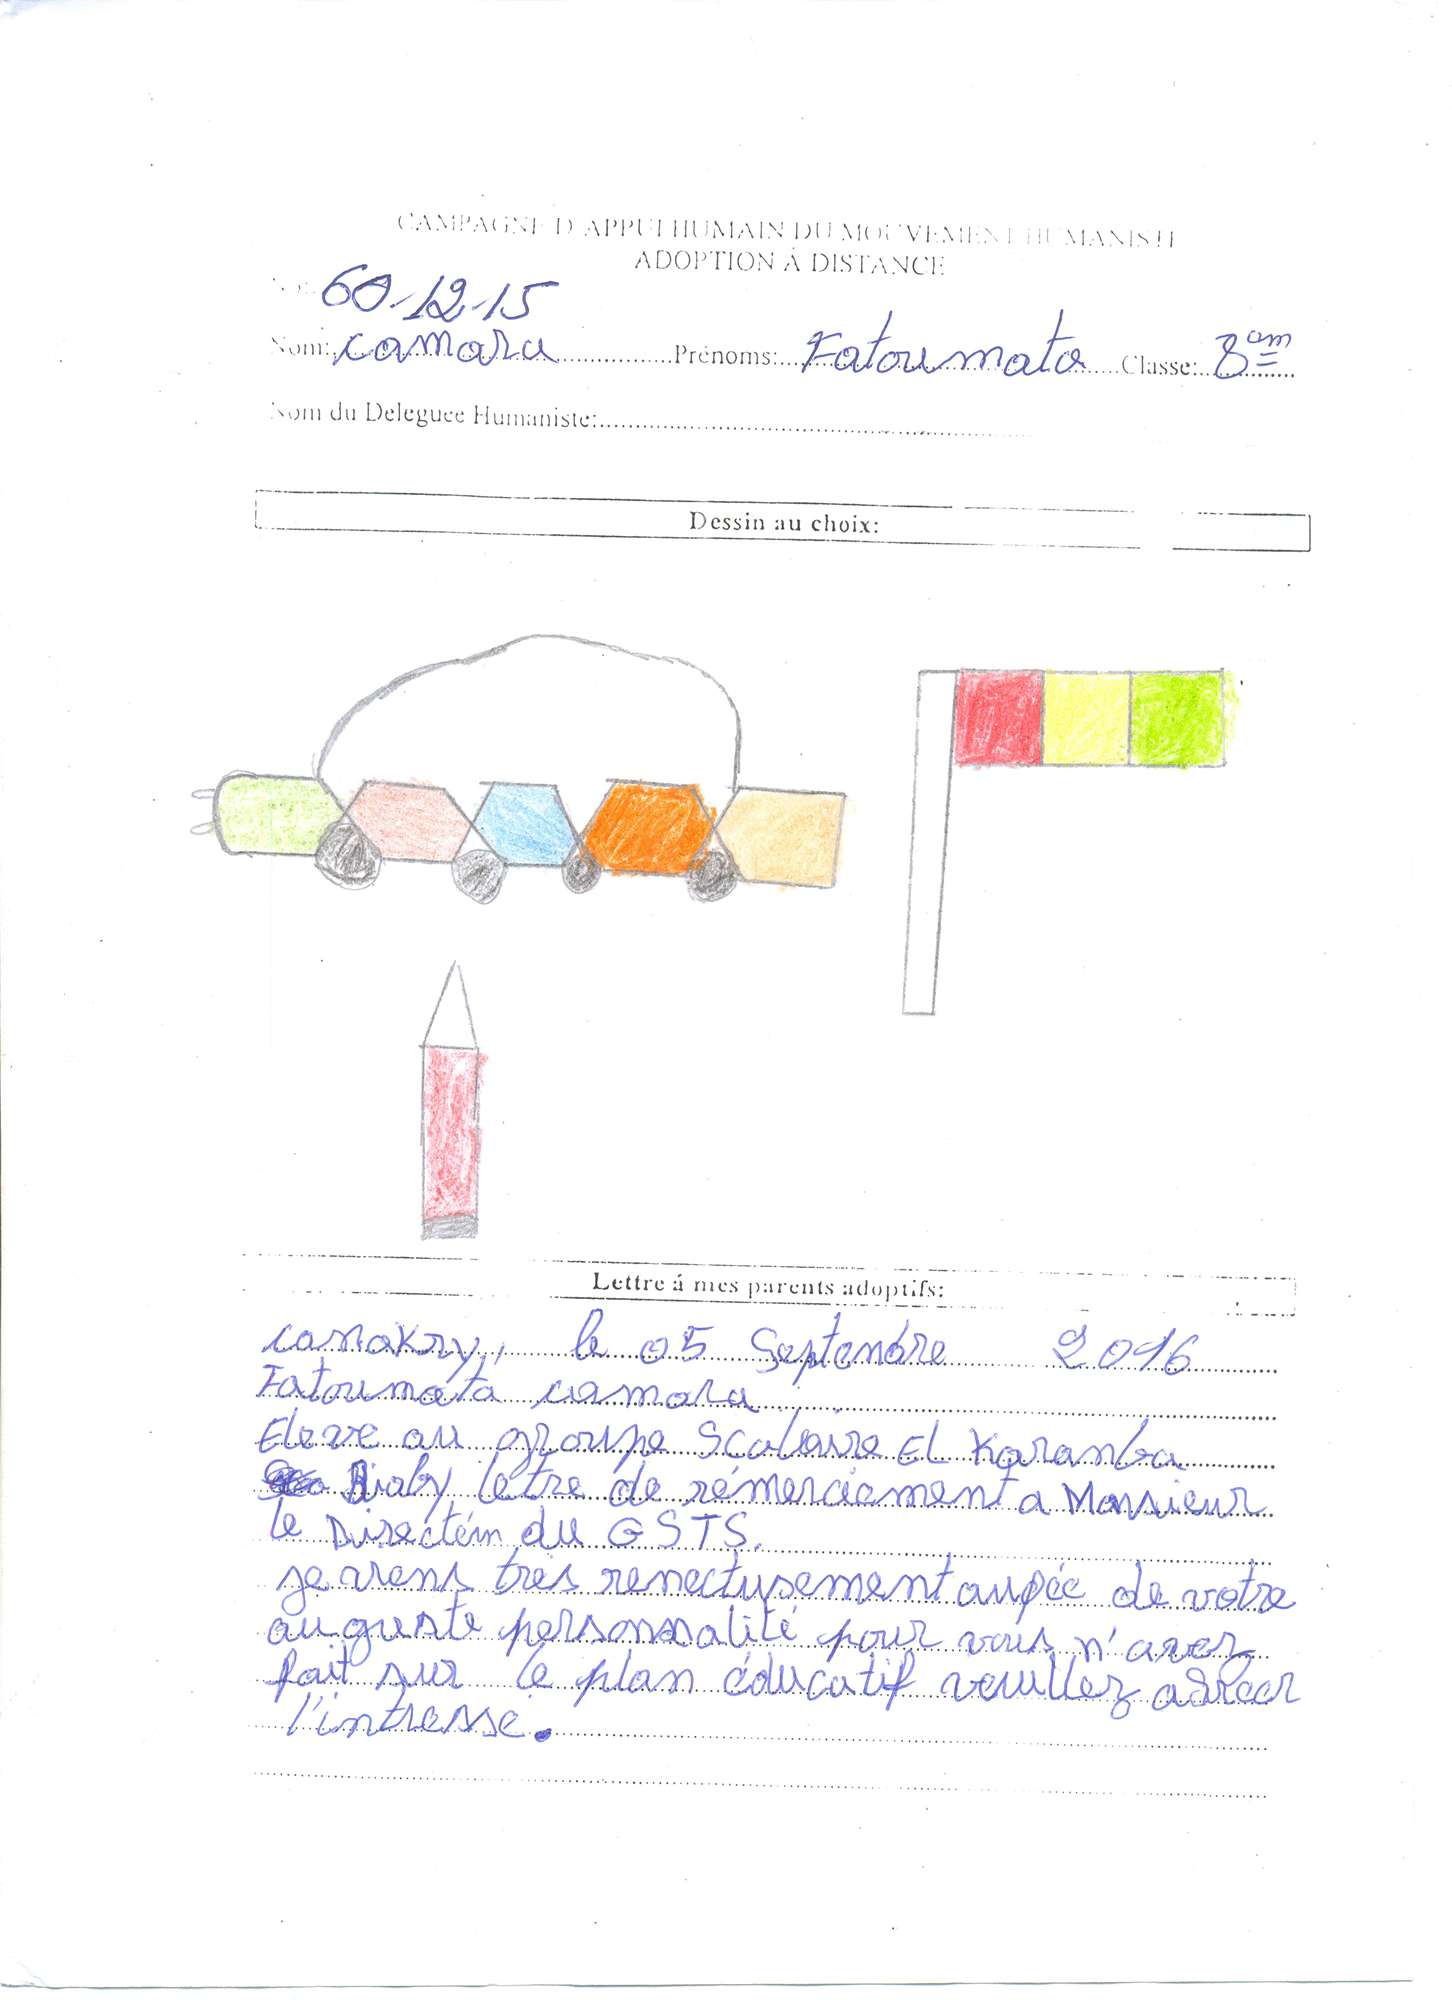 CAMPAGNE D'APPUI HUMAIN DU MOUVEMENT HUMANISTE
ADOPTION Á DISTANCE
60-12-15
Nom: camara Prénoms: Fatoumata Classe: 8em
Nom du Deleguee Humaniste:
Dessin au choix:
Lettre á mes parents adoptifs:
conakry, le 05 Septembre 2016
Fatoumata camara
Eleve au groupe Scolaire El Karamba
Diaby letre de rémerciement a Monsieur
le Directeur du GSTS.
je viens très aupée de votre
auguste personnalité pour vous n'avez
fait sur le plan éducatif veuillez agreer
l'intresse.